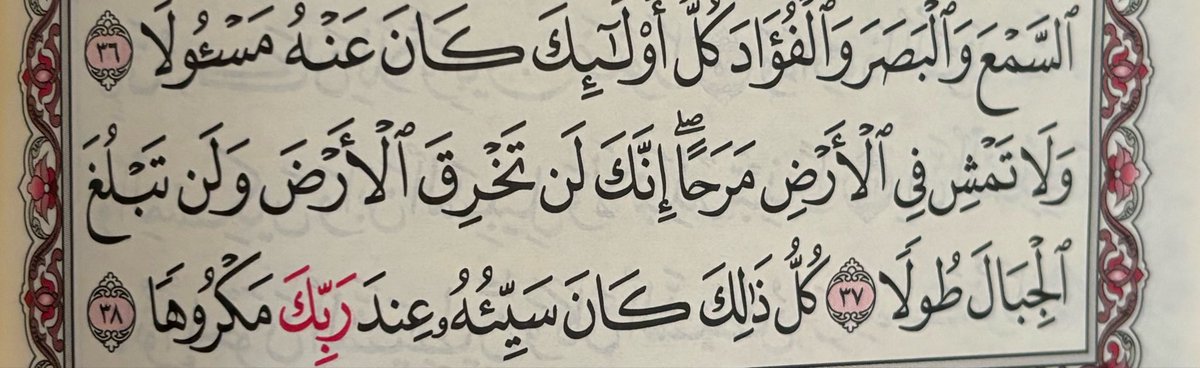 ٱلسَّمْعَ وَٱلْبَصَرَ وَٱلْفُؤَادَ كُلُّ أُو۟لَـٰٓئِكَ كَانَ عَنْهُ مَسْـُٔولًا ٣٦
وَلَا تَمْشِ فِى ٱلْأَرْضِ مَرَحًا ۖ إِنَّكَ لَن تَخْرِقَ ٱلْأَرْضَ وَلَن تَبْلُغَ
ٱلْجِبَالَ طُولًا ٣٧ كُلُّ ذَٰلِكَ كَانَ سَيِّئُهُۥ عِندَ رَبِّكَ مَكْرُوهًا ٣٨